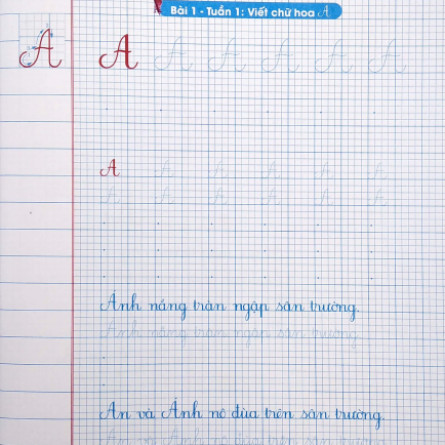 Bài 1 - Tuần 1: Viết chữ hoa A
A A A A A A A
A A A A A A
A A A A A A
Ánh nắng tràn ngập sân trường.
Ánh nắng tràn ngập sân trường.
An và Ánh nô đùa trên sân trường.
An và Ánh nô đùa trên sân trường.